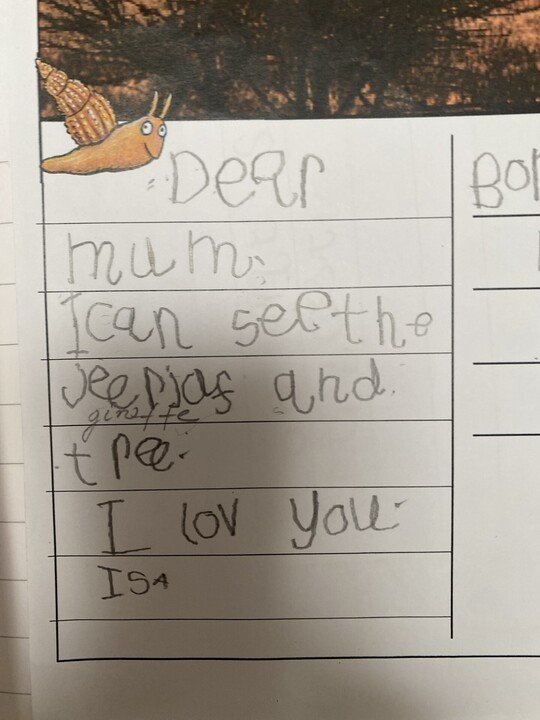 Dear
Bor
mum.
I can see the
jeerjaf and
giraffe
tree.
I lov you.
ISA